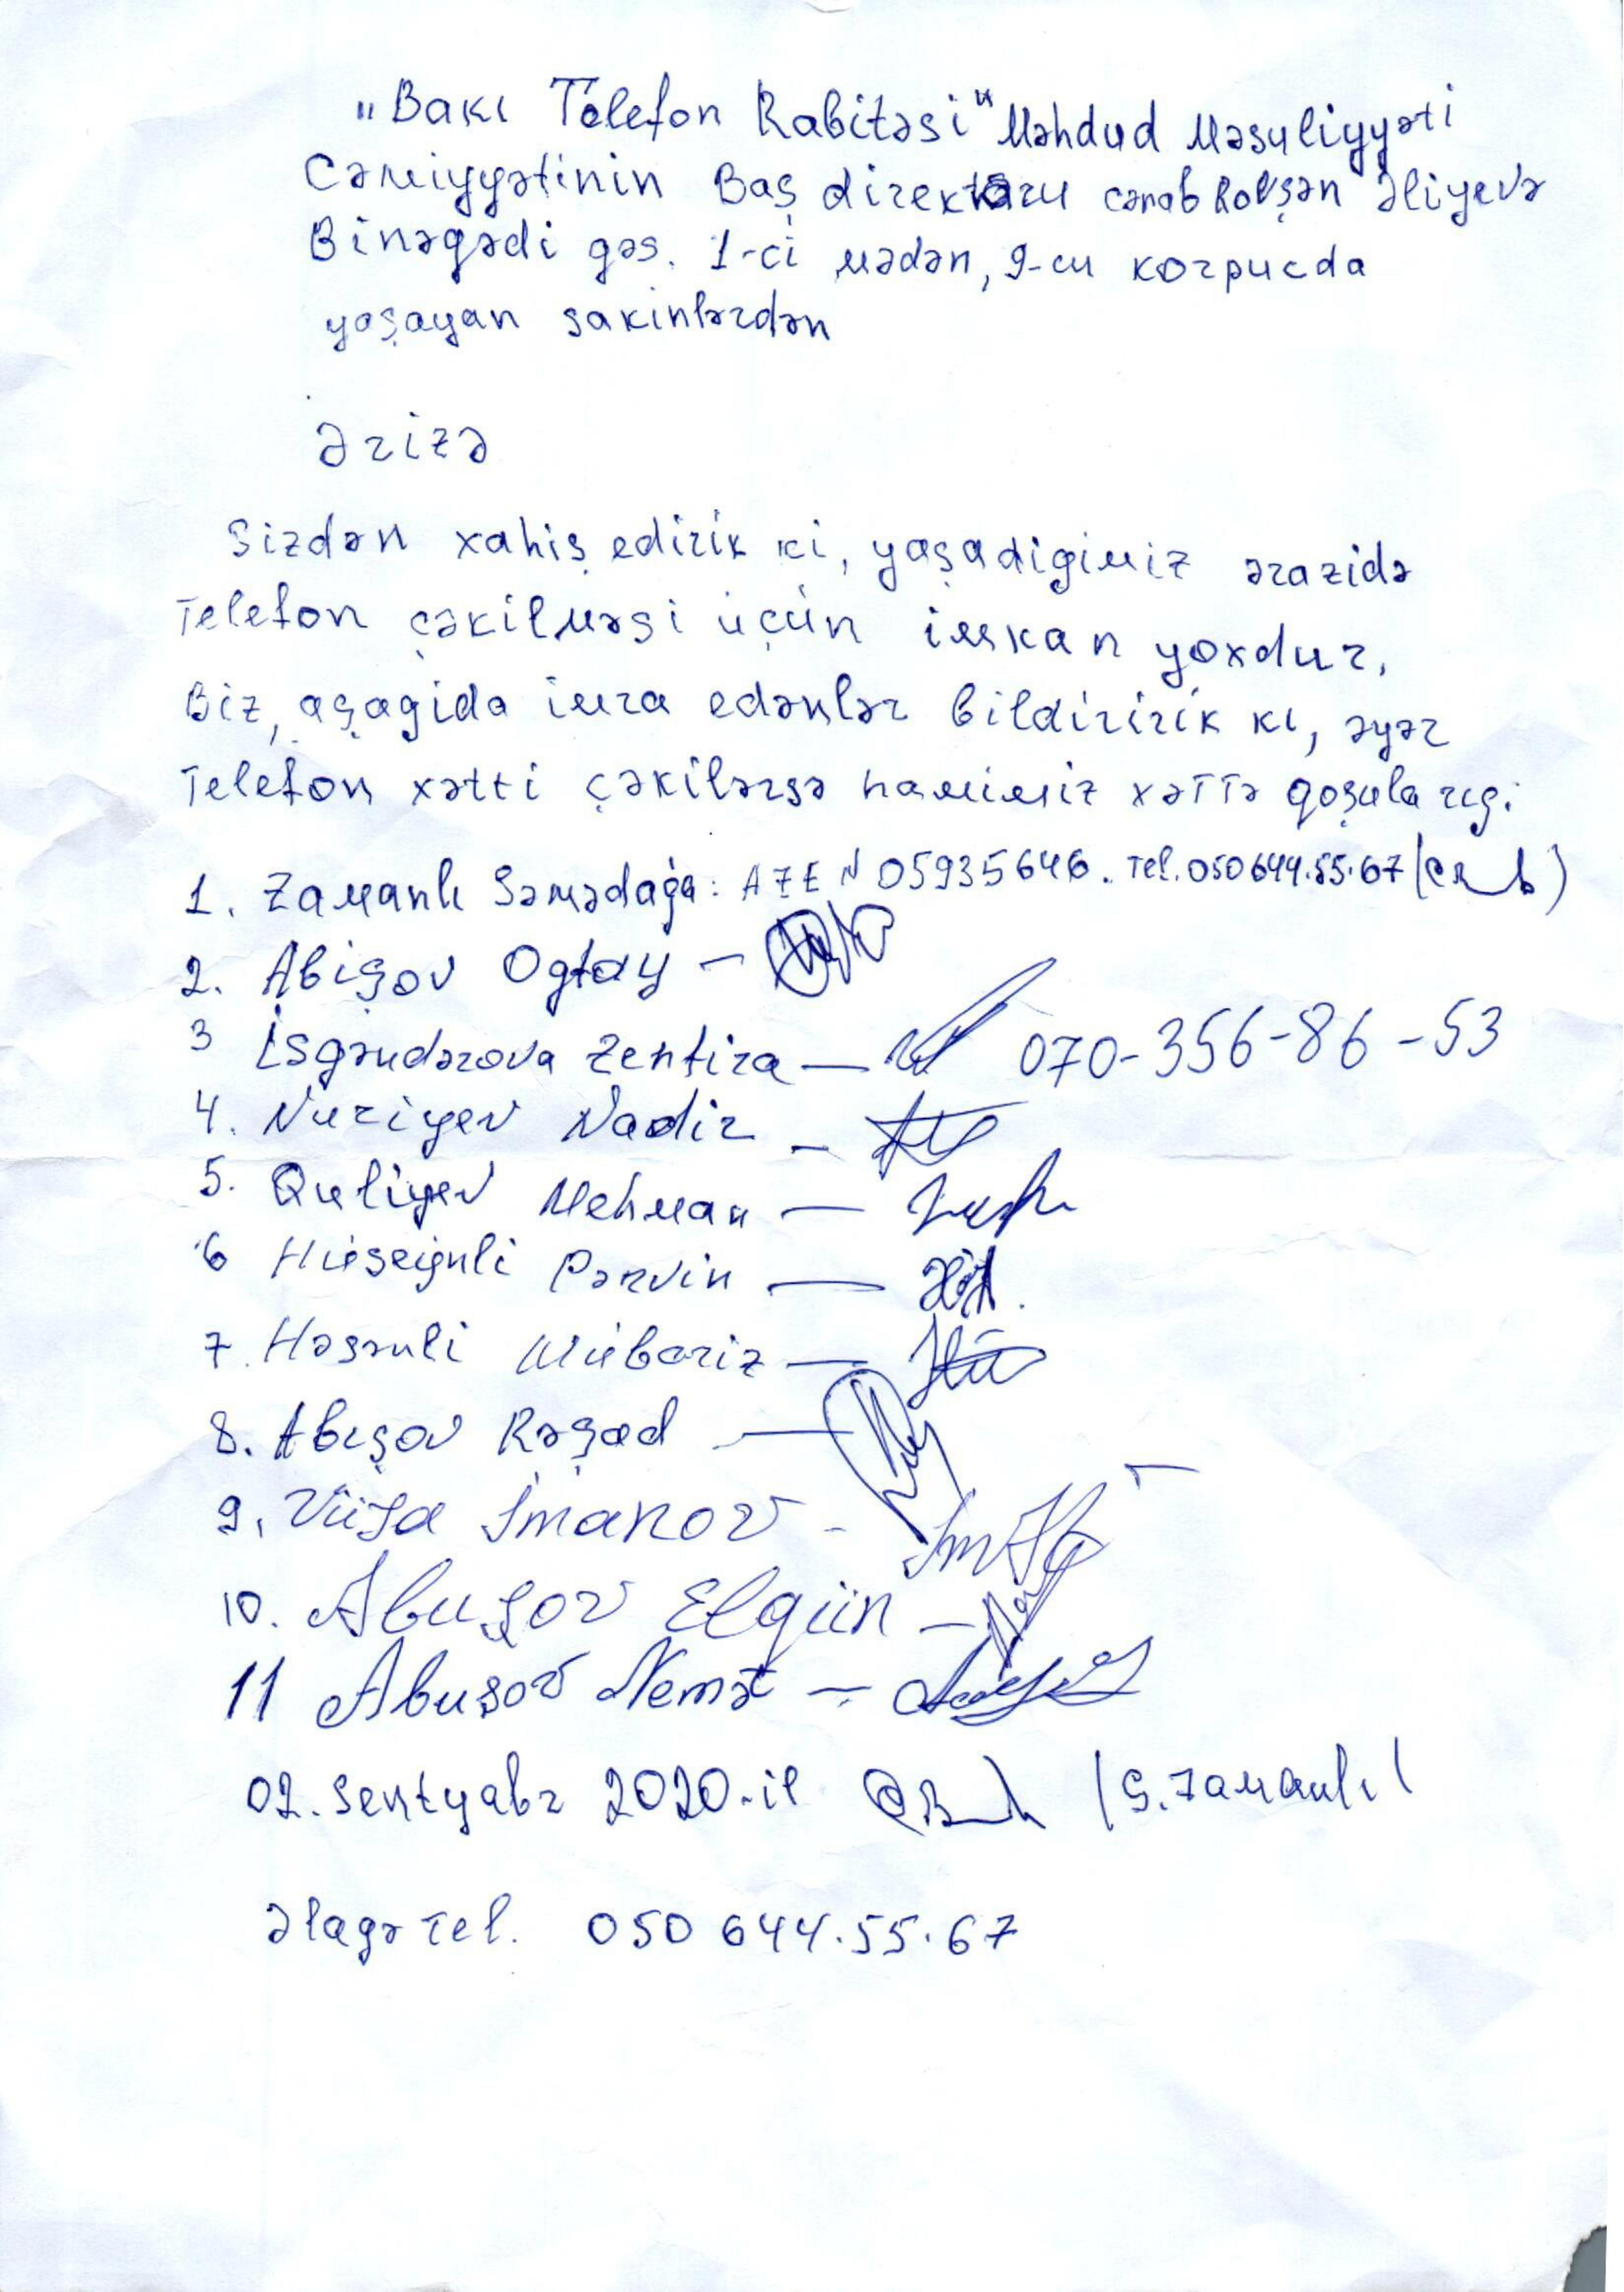 "Bakı Telefon Rabitəsi" Məhdud Məsuliyyəti
Cəmiyyətinin Baş direktoru cənab Rovşən Əliyevə
Binəgədi gəs. 1-ci mədən, 9-cu korpucda
yaşayan sakinlərdən
Ərizə
Sizdən xahiş edirik ki, yaşadigimiz ərazidə
Telefon çəkilməsi üçün imkan yoxdur.
Biz, aşagida imza edənlər bildiririk kı, əyər
Telefon xətti çəkilərsə hamimiz xəttə qoşularıg.
1. Zamanlı Səmədağa: AZE N 05935646. Tel. 050 644.55.67
2. Abişov Ogtay –
3 İsgəndərova Zenfira – 070-356-86-53
4. Nuriyev Nadir –
5. Quliyev Mehman –
6 Hüseignli Pərvin –
7. Həsənli Mübariz –
8. Abışov Rəşad –
9. Vüsa İmanov -
10. Abuşov Elgün –
11 Abuşov Nemət –
02. Sentyabr 2020-il (S. Zamanlı)
Əlagə Tel. 050 644.55.67